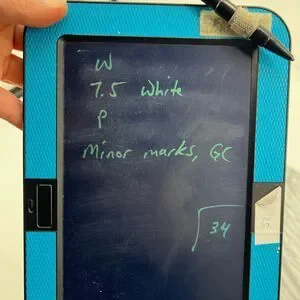 W
7.5 white
P
Minor marks, GC
34